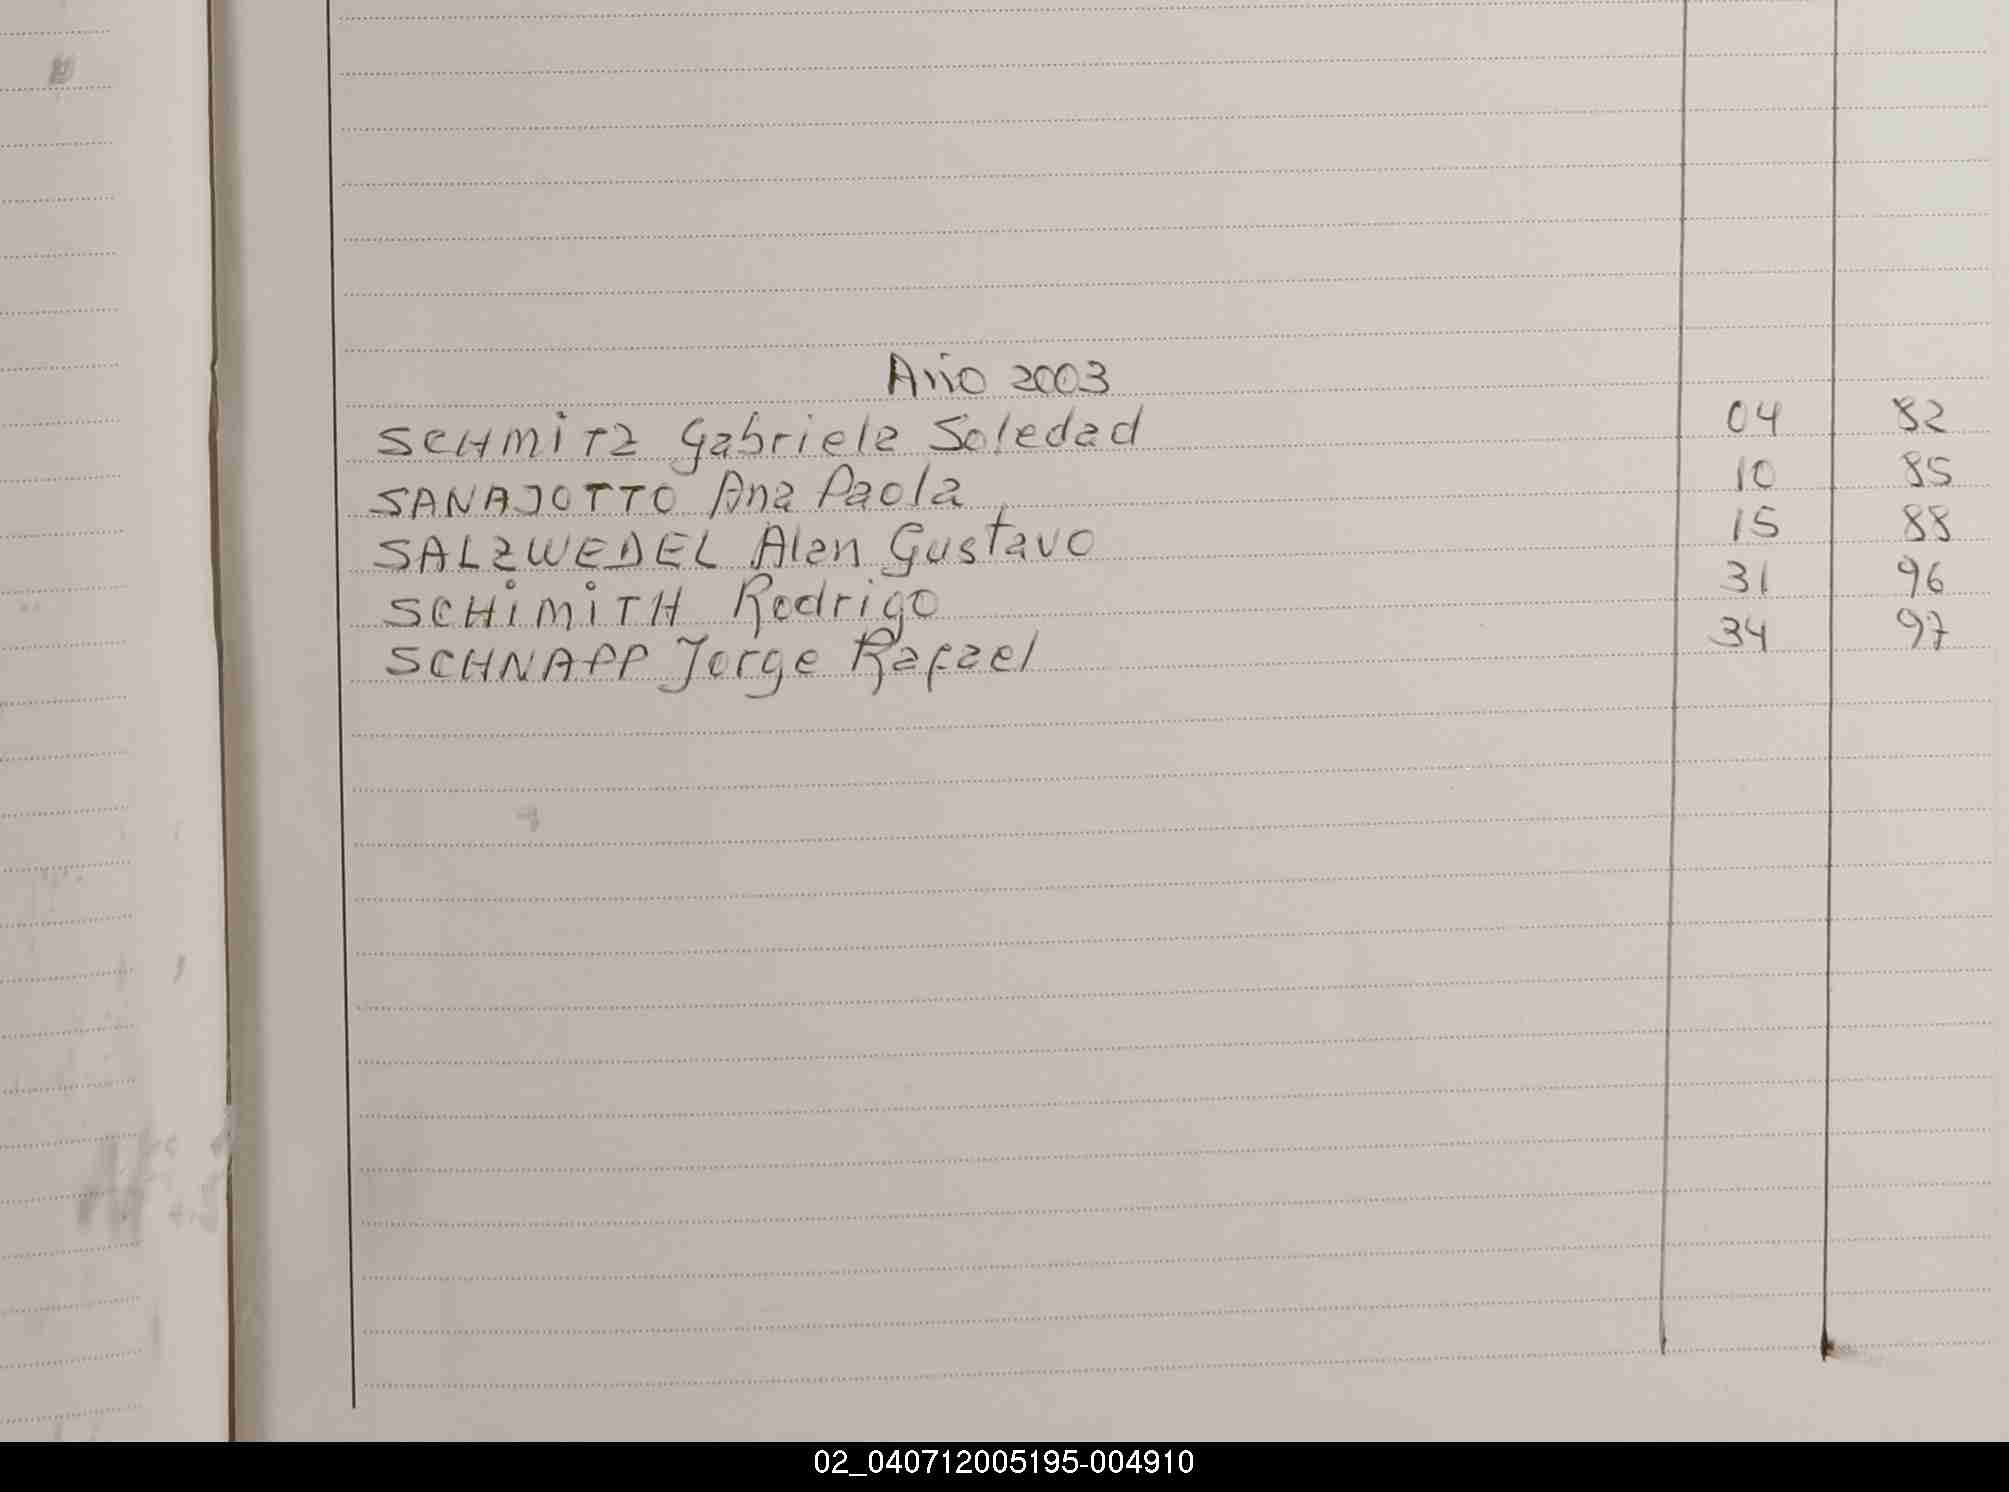 Año 2003
SCHMiTZ Gabriela Soledad 04 82
SANAJOTTO Ana Paola 10 85
SALZWEDEL Alan Gustavo 15 88
SCHiMiTH Rodrigo 31 96
SCHNAPP Jorge Rafael 34 97
02_040712005195-004910